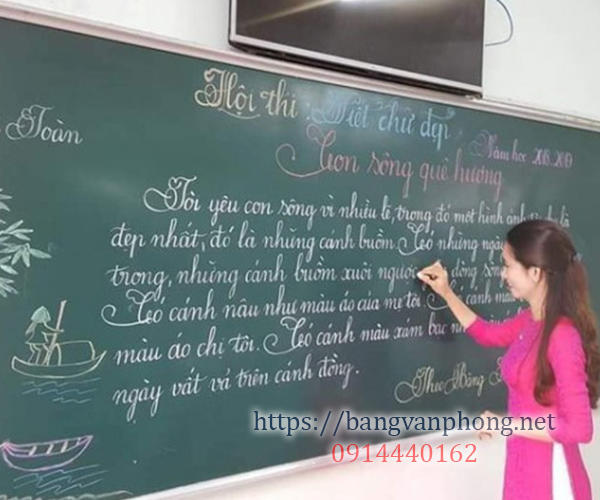 Hội thi Viết chữ đẹp
Toàn
Năm học 2018-2019
Con sông quê hương
Tôi yêu con sông vì nhiều lẽ, trong đó một hình ảnh
đẹp nhất, đó là những cánh buồm. Có những ngày
trong, những cánh buồm xuôi ngược dòng sông
Có cánh nâu như màu áo của mẹ tôi. Có cánh màu
màu áo chị tôi. Có cánh màu xám bạc như màu áo
ngày vất vả trên cánh đồng.
Theo Băng
https://bangvanphong.net
0914440162